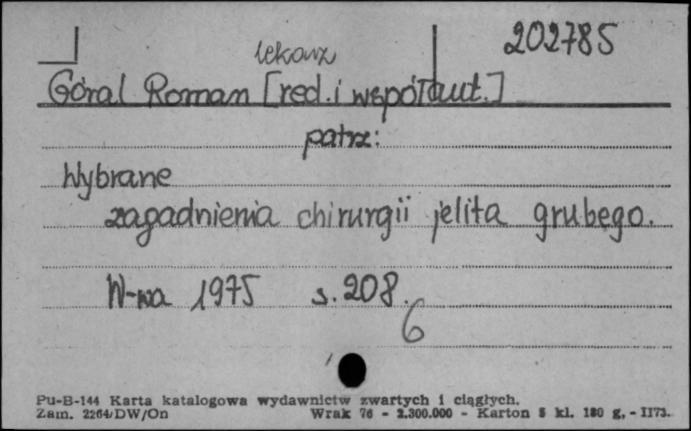 lekarz 202785
Góral Roman [red. i współaut.]
patrz:
Wybrane
zagadnienia chirurgii jelita grubego.
W-wa 1975 s. 208.
6
Pu-B-144 Karta katalogowa wydawnictw zwartych i ciągłych.
Zam. 2264/DW/On Wrak 76 - 2.300.000 - Karton 5 kl. 180 g. - 1173.